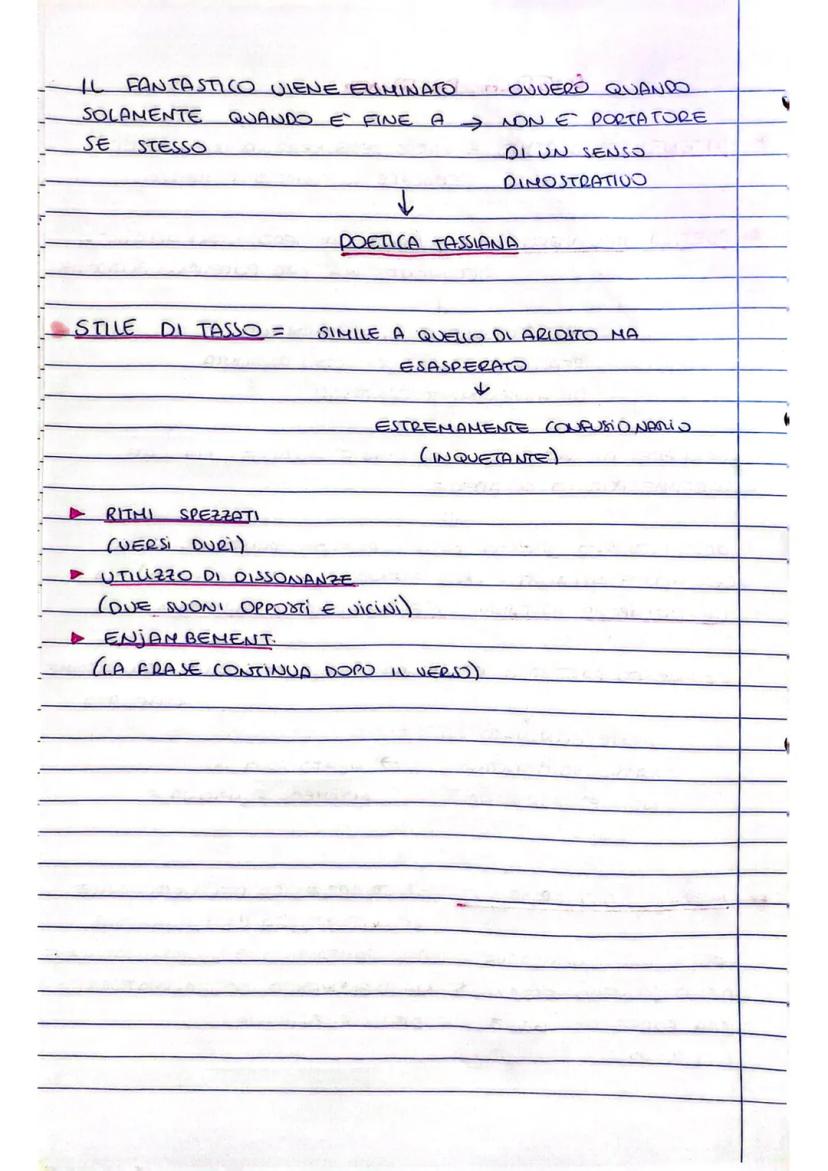 IL FANTASTICO VIENE ELIMINATO OVVERO QUANDO
SOLAMENTE QUANDO E' FINE A → NON E' PORTATORE
SE STESSO DI UN SENSO
DIMOSTRATIVO
↓
POETICA TASSIANA
STILE DI TASSO = SIMILE A QUELLO DI ARIOSTO MA
ESASPERATO
↓
ESTREMAMENTE CONFUSIONARIO
(INQUETANTE)
▶ RITMI SPEZZATI
(VERSI DURI)
▶ UTILIZZO DI DISSONANZE
(DUE SUONI OPPOSTI E VICINI)
▶ ENJAMBEMENT.
(LA FRASE CONTINUA DOPO IL VERSO)